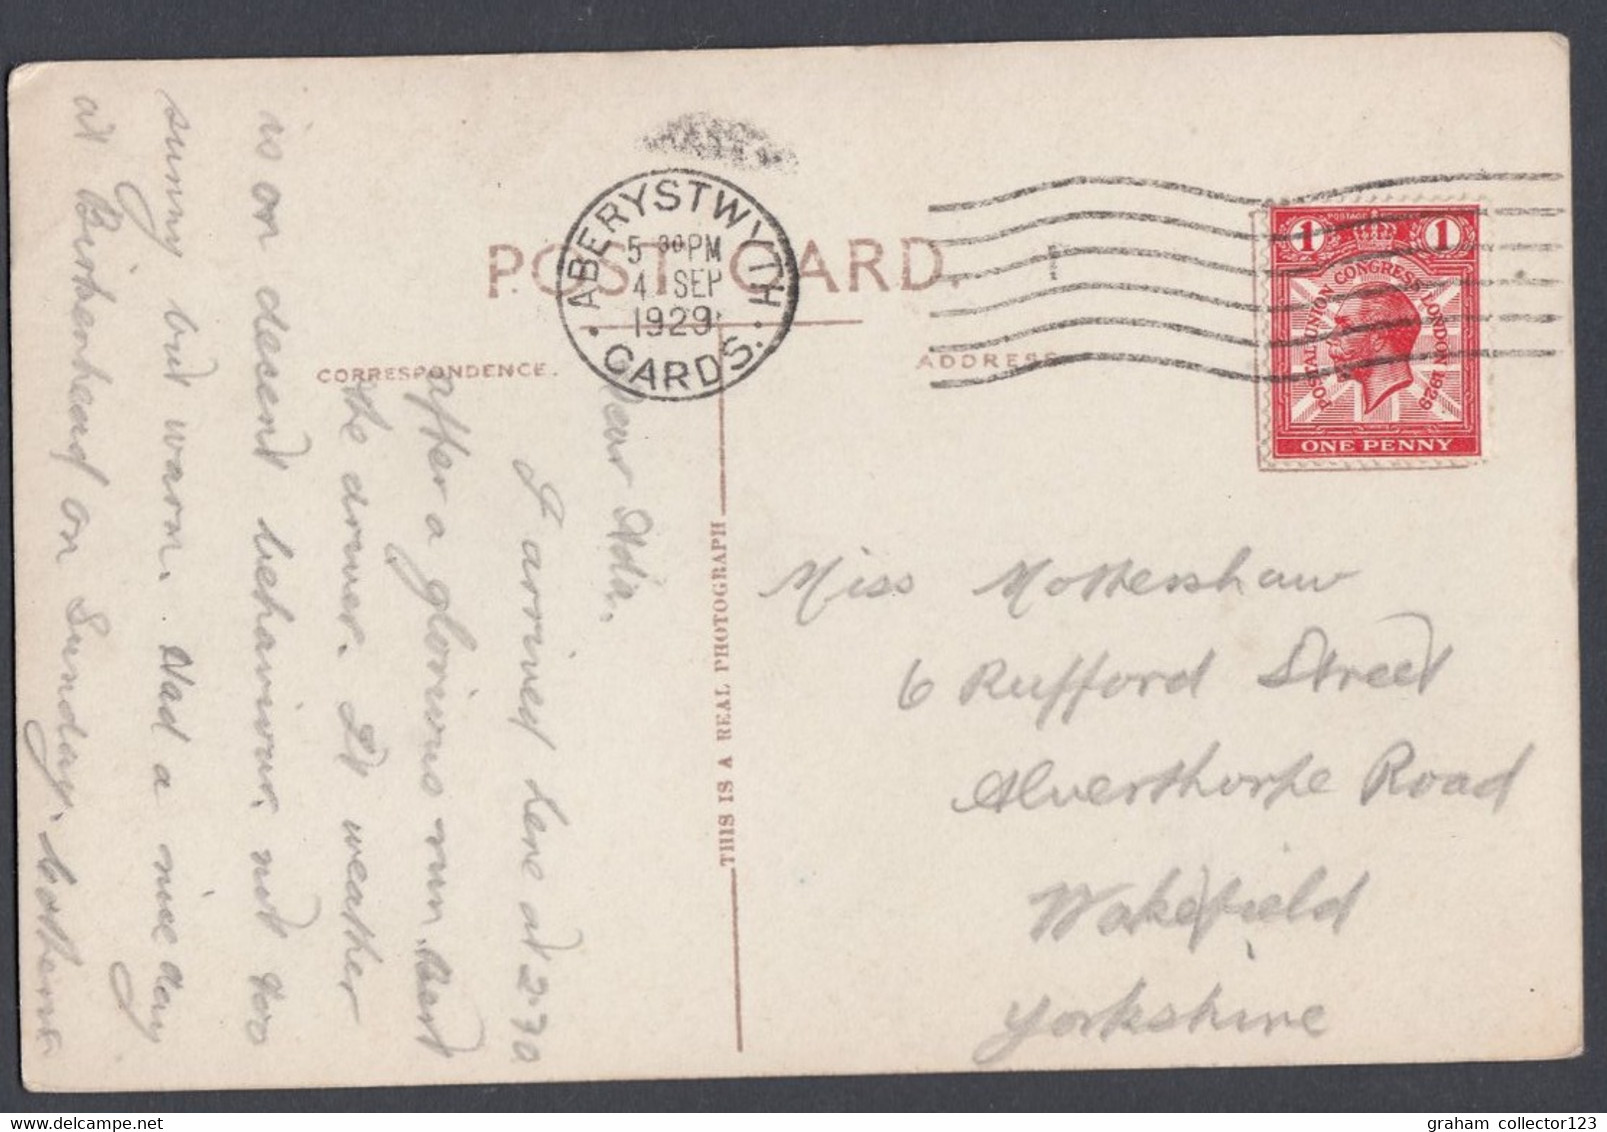 POST CARD.
ABERYSTWYTH
5 30 PM
4 SEP
1929
CARDS.
CORRESPONDENCE.
ADDRESS
1 POSTAGE 1
POSTAL UNION CONGRESS LONDON 1929
ONE PENNY
THIS IS A REAL PHOTOGRAPH
Dear Ada.
I arrived here at 2-30
after a glorious run. Bert
the driver. It weather
is on decent behaviour. not too
sunny but warm. Had a nice day
at Birkenhead on Sunday.
Miss Mottershaw
6 Rufford Street
Alverthorpe Road
Wakefield
Yorkshire
graham collector123